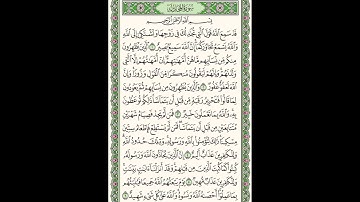 سورة المجادلة
بِسْمِ اللَّهِ الرَّحْمَٰنِ الرَّحِيمِ
قَدْ سَمِعَ اللَّهُ قَوْلَ الَّتِي تُجَادِلُكَ فِي زَوْجِهَا وَتَشْتَكِي إِلَى اللَّهِ
وَاللَّهُ يَسْمَعُ تَحَاوُرَكُمَا إِنَّ اللَّهَ سَمِيعٌ بَصِيرٌ ١ الَّذِينَ يُظَاهِرُونَ
مِنكُم مِّن نِّسَائِهِم مَّا هُنَّ أُمَّهَاتِهِمْ إِنْ أُمَّهَاتُهُمْ إِلَّا اللَّائِي
وَلَدْنَهُمْ وَإِنَّهُمْ لَيَقُولُونَ مُنكَرًا مِّنَ الْقَوْلِ وَزُورًا وَإِنَّ
اللَّهَ لَعَفُوٌّ غَفُورٌ ٢ وَالَّذِينَ يُظَاهِرُونَ مِن نِّسَائِهِمْ ثُمَّ يَعُودُونَ
لِمَا قَالُوا فَتَحْرِيرُ رَقَبَةٍ مِّن قَبْلِ أَن يَتَمَاسَّا ذَٰلِكُمْ تُوعَظُونَ
بِهِ وَاللَّهُ بِمَا تَعْمَلُونَ خَبِيرٌ ٣ فَمَن لَّمْ يَجِدْ فَصِيَامُ شَهْرَيْنِ
مُتَتَابِعَيْنِ مِن قَبْلِ أَن يَتَمَاسَّا فَمَن لَّمْ يَسْتَطِعْ فَإِطْعَامُ سِتِّينَ
مِسْكِينًا ذَٰلِكَ لِتُؤْمِنُوا بِاللَّهِ وَرَسُولِهِ وَتِلْكَ حُدُودُ اللَّهِ
وَلِلْكَافِرِينَ عَذَابٌ أَلِيمٌ ٤ إِنَّ الَّذِينَ يُحَادُّونَ اللَّهَ وَرَسُولَهُ
كُبِتُوا كَمَا كُبِتَ الَّذِينَ مِن قَبْلِهِمْ وَقَدْ أَنزَلْنَا آيَاتٍ بَيِّنَاتٍ
وَلِلْكَافِرِينَ عَذَابٌ مُّهِينٌ ٥ يَوْمَ يَبْعَثُهُمُ اللَّهُ جَمِيعًا فَيُنَبِّئُهُم
بِمَا عَمِلُوا أَحْصَاهُ اللَّهُ وَنَسُوهُ وَاللَّهُ عَلَىٰ كُلِّ شَيْءٍ شَهِيدٌ ٦